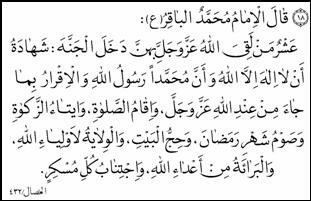 ١٨ قالَ الْاِمامُ مُحَمَّدٌ الْباقِرُ(ع):
عَشْرٌ مَنْ لَقِىَ اللهَ عَزَّوَجَلَّ بِهِنَّ دَخَلَ الْجَنَّةَ: شَهادَةُ
اَنْ لا اِلهَ اِلاَّ اللهُ وَ اَنَّ مُحَمَّداً رَسُولُ اللهِ وَ الْاِقْرارُ بِما
جاءَ مِنْ عِنْدِ اللهِ عَزَّ وَجَلَّ، وَ اِقامُ الصَّلوةِ، وَ ايتاءُ الزَّكوةِ
وَ صَوْمُ شَهْرِ رَمَضانَ، وَ حِجُّ الْبَيْتِ، وَالْوِلايَةُ لِاَوْلِياءِ اللهِ،
وَ الْبَرائَةُ مِنْ اَعْداءِ اللهِ، وَ اجْتِنابُ كُلِّ مُسْكِرٍ.
الخصال/٤٣٢